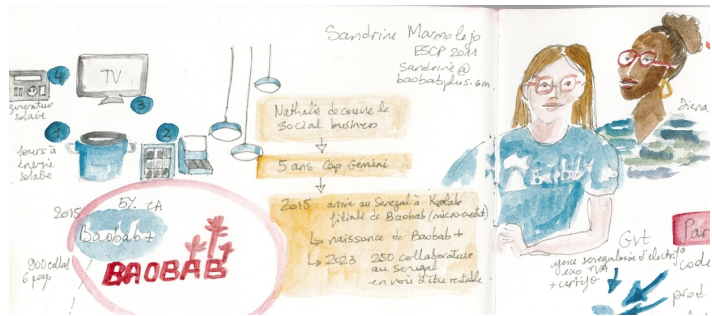 Sandrine Marmolejo
ESCP 2011
Sandrine@
baobabplus.com
4
TV
générateur
solaire
3
1
2
fours à
énergie
solaire
Nathalie découvre le
social business
5 ans Cap Gemini
2015 arrive au Sénégal à Kaolak
filiale de Baobab (microcrédit)
naissance de Baobab +
2023 250 collaborateurs
au Sénégal
en voie d'être rentable
2015
5% CA
Baobab+
900 collab
6 pays
BAOBAB
Baobab+
Gvt
sénégalaise d'électrif°
exo TVA
+ certif°
Par
code
prod